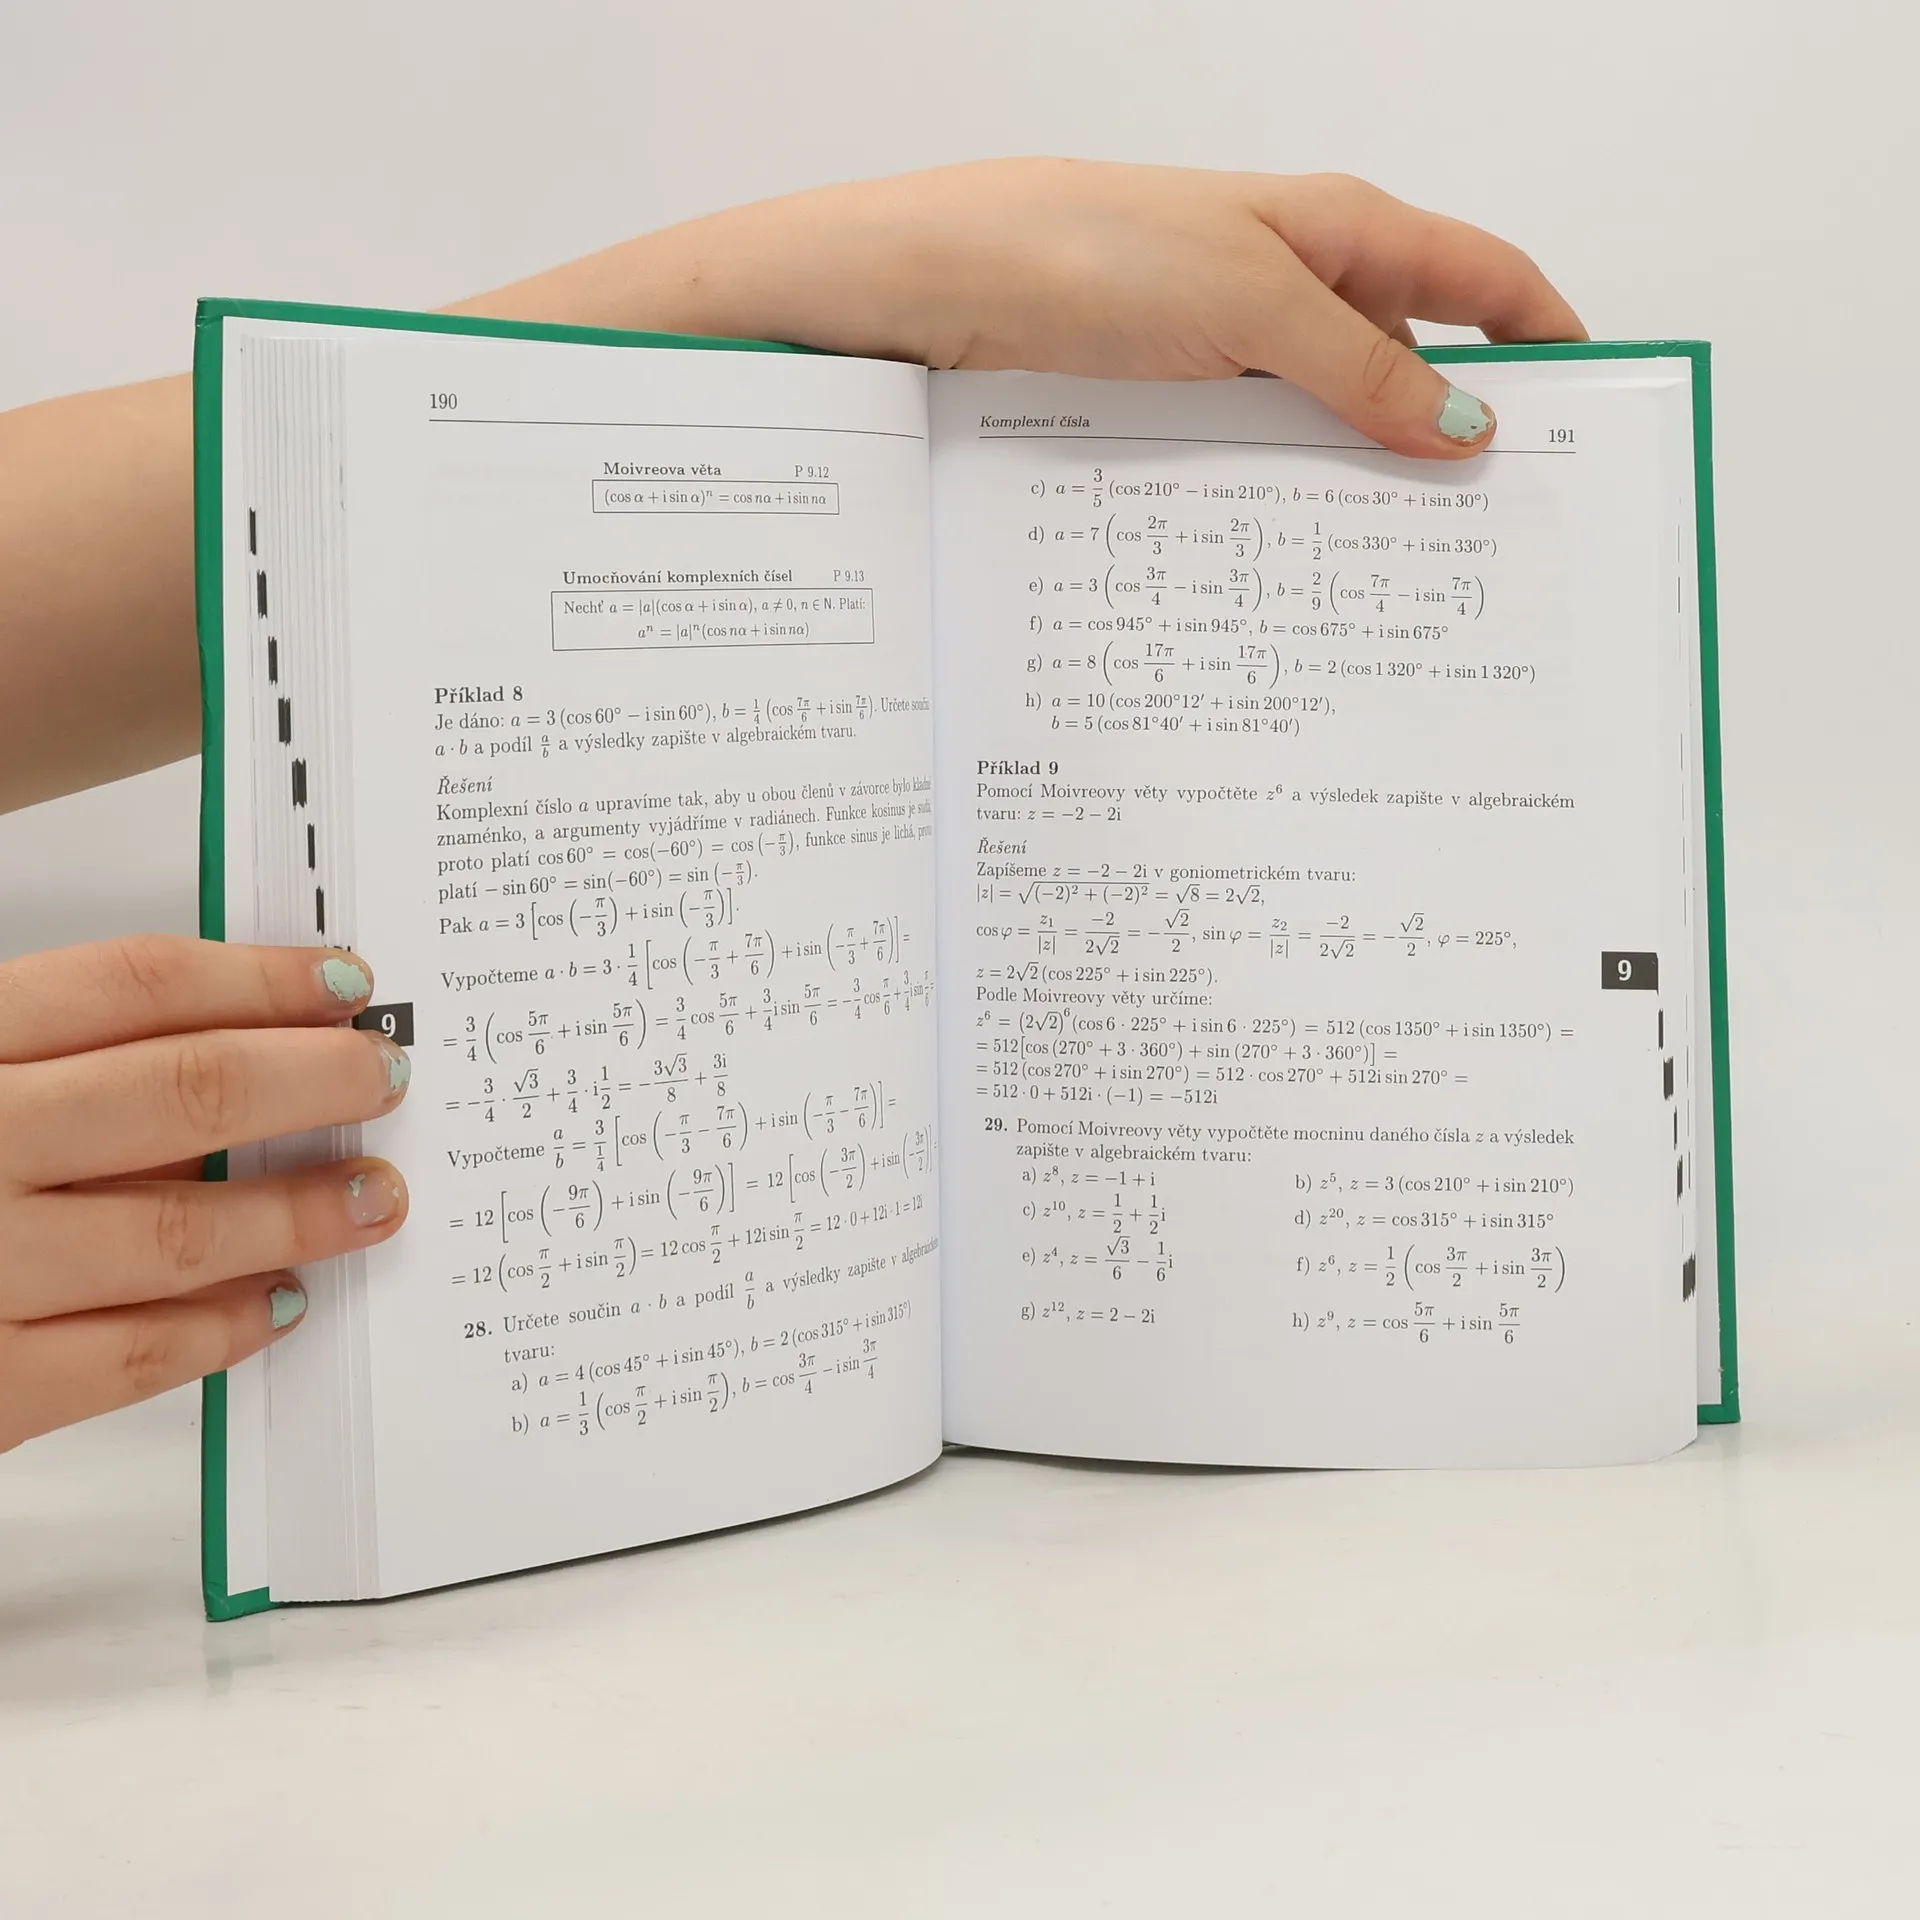 190
Moivreova věta P 9.12
(cos α + i sin α)ⁿ = cos nα + i sin nα
Umocňování komplexních čísel P 9.13
Nechť a = |a|(cos α + i sin α), a ≠ 0, n ∈ N. Platí:
aⁿ = |a|ⁿ(cos nα + i sin nα)
Příklad 8
Je dáno: a = 3 (cos 60° − i sin 60°), b = 1/4 (cos 7π/6 + i sin 7π/6). Určete součin
a · b a podíl a/b a výsledky zapište v algebraickém tvaru.
Řešení
Komplexní číslo a upravíme tak, aby u obou členů v závorce bylo kladné
znaménko, a argumenty vyjádříme v radiánech. Funkce kosinus je sudá,
proto platí cos 60° = cos(−60°) = cos (−π/3), funkce sinus je lichá, proto
platí − sin 60° = sin(−60°) = sin (−π/3).
Pak a = 3 [cos (−π/3) + i sin (−π/3)].
Vypočteme a · b = 3 · 1/4 [cos (−π/3 + 7π/6) + i sin (−π/3 + 7π/6)] =
= 3/4 (cos 5π/6 + i sin 5π/6) = 3/4 cos 5π/6 + 3/4 i sin 5π/6 = −3/4 cos π/6 + 3/4 i sin π/6 =
= −3/4 · √3/2 + 3/4 · i 1/2 = −3√3/8 + 3i/8
Vypočteme a/b = 3/(1/4) [cos (−π/3 − 7π/6) + i sin (−π/3 − 7π/6)] =
= 12 [cos (−9π/6) + i sin (−9π/6)] = 12 [cos (−3π/2) + i sin (−3π/2)] =
= 12 (cos π/2 + i sin π/2) = 12 cos π/2 + 12i sin π/2 = 12 · 0 + 12i · 1 = 12i
28. Určete součin a · b a podíl a/b a výsledky zapište v algebraickém
tvaru:
a) a = 4 (cos 45° + i sin 45°), b = 2 (cos 315° + i sin 315°)
b) a = 1/3 (cos π/2 + i sin π/2), b = cos 3π/4 − i sin 3π/4
9
Komplexní čísla 191
c) a = 3/5 (cos 210° − i sin 210°), b = 6 (cos 30° + i sin 30°)
d) a = 7 (cos 2π/3 + i sin 2π/3), b = 1/2 (cos 330° + i sin 330°)
e) a = 3 (cos 3π/4 − i sin 3π/4), b = 2/9 (cos 7π/4 − i sin 7π/4)
f) a = cos 945° + i sin 945°, b = cos 675° + i sin 675°
g) a = 8 (cos 17π/6 + i sin 17π/6), b = 2 (cos 1 320° + i sin 1 320°)
h) a = 10 (cos 200°12′ + i sin 200°12′),
b = 5 (cos 81°40′ + i sin 81°40′)
Příklad 9
Pomocí Moivreovy věty vypočtěte z⁶ a výsledek zapište v algebraickém
tvaru: z = −2 − 2i
Řešení
Zapíšeme z = −2 − 2i v goniometrickém tvaru:
|z| = √((−2)² + (−2)²) = √8 = 2√2,
cos φ = z₁/|z| = −2/(2√2) = −√2/2, sin φ = z₂/|z| = −2/(2√2) = −√2/2, φ = 225°,
z = 2√2 (cos 225° + i sin 225°).
Podle Moivreovy věty určíme:
z⁶ = (2√2)⁶ (cos 6 · 225° + i sin 6 · 225°) = 512 (cos 1350° + i sin 1350°) =
= 512 [cos (270° + 3 · 360°) + sin (270° + 3 · 360°)] =
= 512 (cos 270° + i sin 270°) = 512 · cos 270° + 512i sin 270° =
= 512 · 0 + 512i · (−1) = −512i
29. Pomocí Moivreovy věty vypočtěte mocninu daného čísla z a výsledek
zapište v algebraickém tvaru:
a) z⁸, z = −1 + i b) z⁵, z = 3 (cos 210° + i sin 210°)
c) z¹⁰, z = 1/2 + 1/2 i d) z²⁰, z = cos 315° + i sin 315°
e) z⁴, z = √3/6 − 1/6 i f) z⁶, z = 1/2 (cos 3π/2 + i sin 3π/2)
g) z¹², z = 2 − 2i h) z⁹, z = cos 5π/6 + i sin 5π/6
9